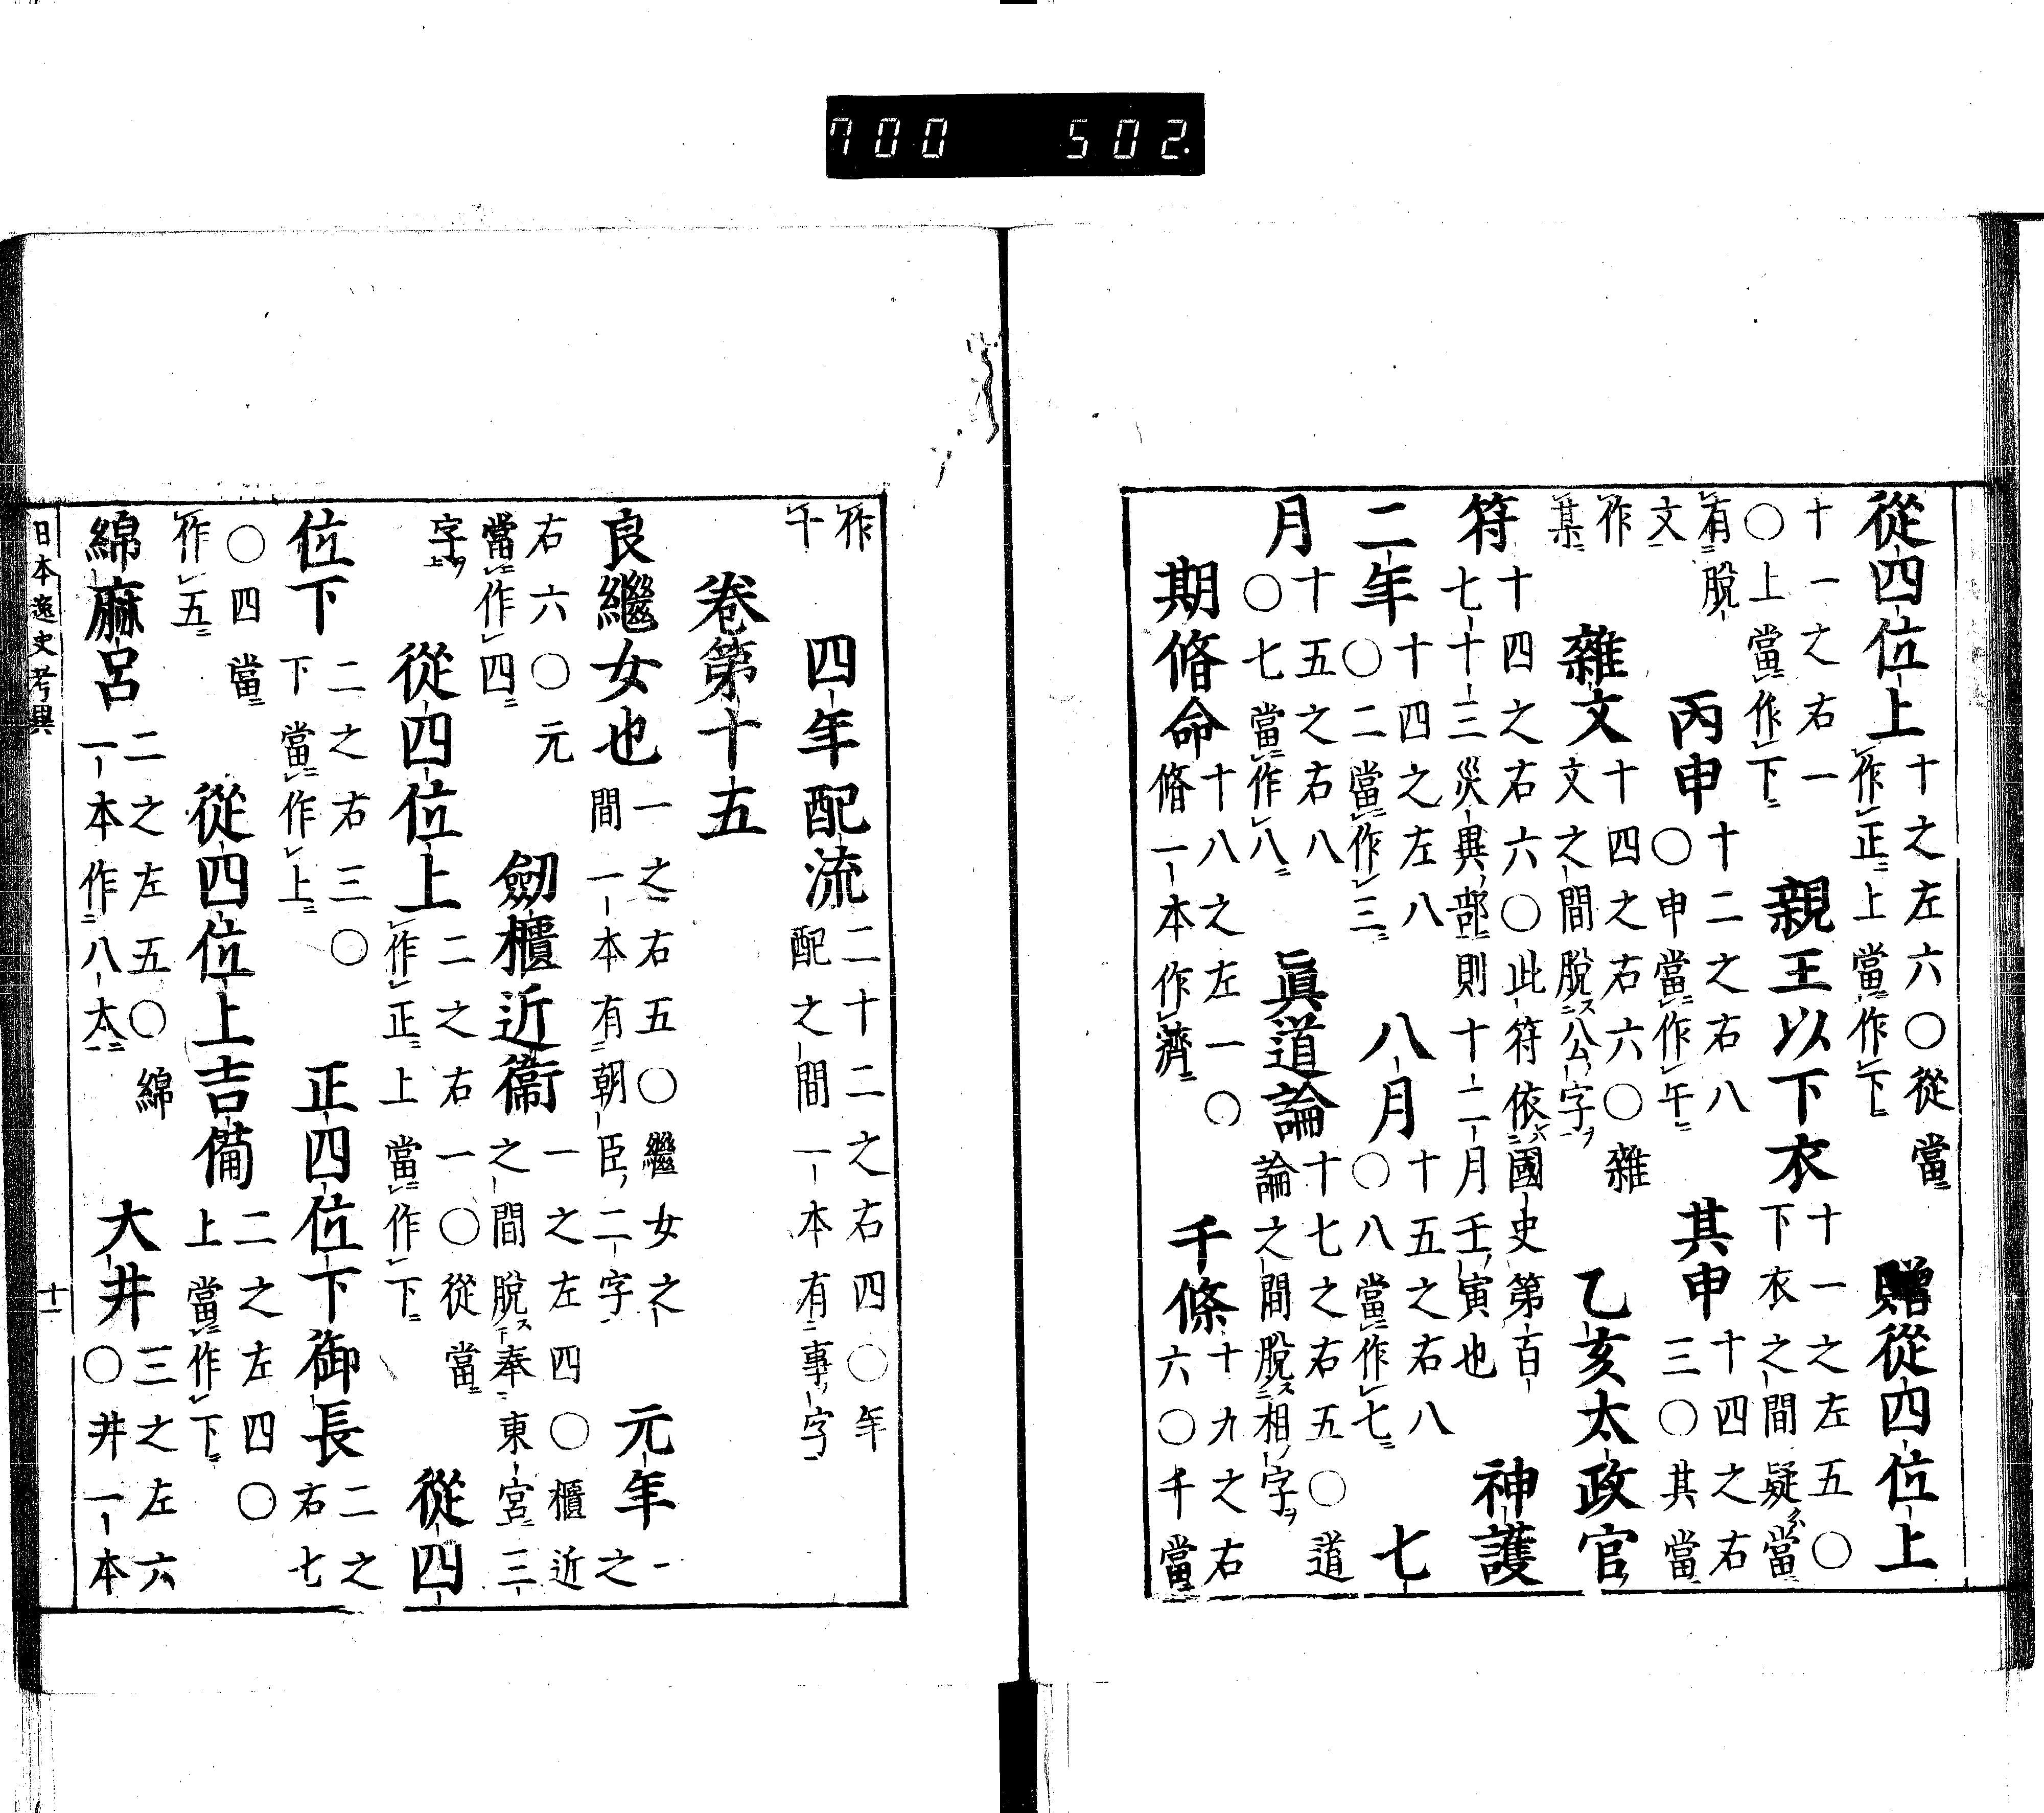 從四位上十之左六〇從當作正上當作下贈從四位上
十一之右一〇上當作下親王以下衣十一之左五〇下衣之間疑當
有脫文丙申十二之右八〇申當作午其申十四之右三〇其當
作某雜文十四之右六〇雜文之間脫公字乙亥太政官
符十四之右六〇此符依國史第百七十三災異部則十二月壬寅也神護
二年十四之左八〇二當作三八月十五之右八〇八當作七七
月十五之右八〇七當作八眞道論十七之右五〇道論之間脫相字
期脩命十八之左一〇脩一本作濟千條十九之右六〇千當
作干四年配流二十二之右四〇年配之間一本有事字
卷第十五
良繼女也一之右五〇繼女之間一本有朝臣二字元年一之
右六〇元當作四劒櫃近衞一之左四〇櫃近之間脫奉東宮三
字從四位上二之右一〇從當作正上當作下從四
位下二之右三〇下當作上正四位下御長二之右七
〇四當作五從四位上吉備二之左四〇上當作下
綿麻呂二之左五〇綿一本作八太大井三之左六〇井一本
日本逸史考異 十一
700 502